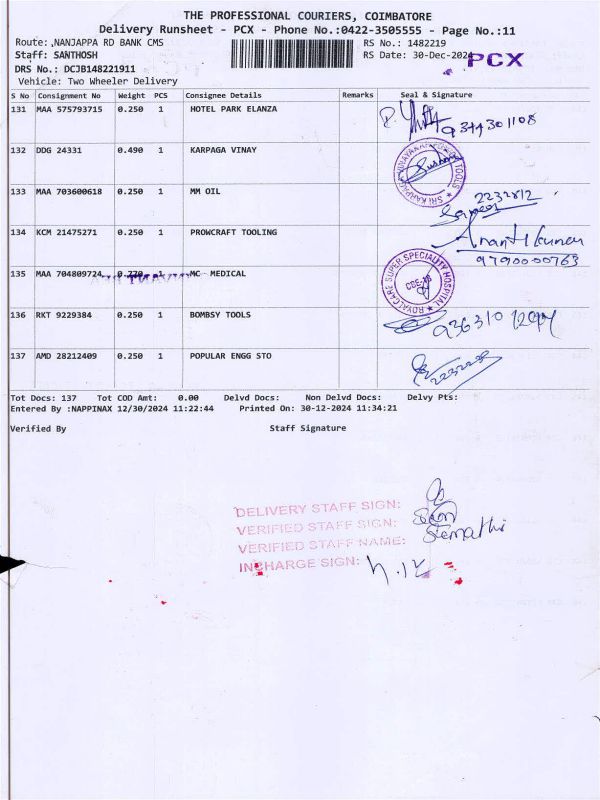 THE PROFESSIONAL COURIERS, COIMBATORE
Delivery Runsheet - PCX - Phone No.:0422-3505555 - Page No.:11
Route: ,NANJAPPA RD BANK CMS RS No.: 1482219
Staff: SANTHOSH RS Date: 30-Dec-2024 PCX
DRS No.: DCJB148221911
Vehicle: Two Wheeler Delivery
S No Consignment No Weight PCS Consignee Details Remarks Seal & Signature
131 MAA 575793715 0.250 1 HOTEL PARK ELANZA
9344301108
132 DDG 24331 0.490 1 KARPAGA VINAY
133 MAA 703600618 0.250 1 MM OIL
134 KCM 21475271 0.250 1 PROWCRAFT TOOLING
Ananthkumar
9790000763
135 MAA 704809724 0.770 1 MC MEDICAL
ROYALCARE SUPER SPECIALITY HOSPITAL
136 RKT 9229384 0.250 1 BOMBSY TOOLS
137 AMD 28212409 0.250 1 POPULAR ENGG STO
Tot Docs: 137 Tot COD Amt: 0.00 Delvd Docs: Non Delvd Docs: Delvy Pts:
Entered By :NAPPINAX 12/30/2024 11:22:44 Printed On: 30-12-2024 11:34:21
Verified By Staff Signature
DELIVERY STAFF SIGN:
VERIFIED STAFF SIGN:
VERIFIED STAFF NAME:
INCHARGE SIGN: